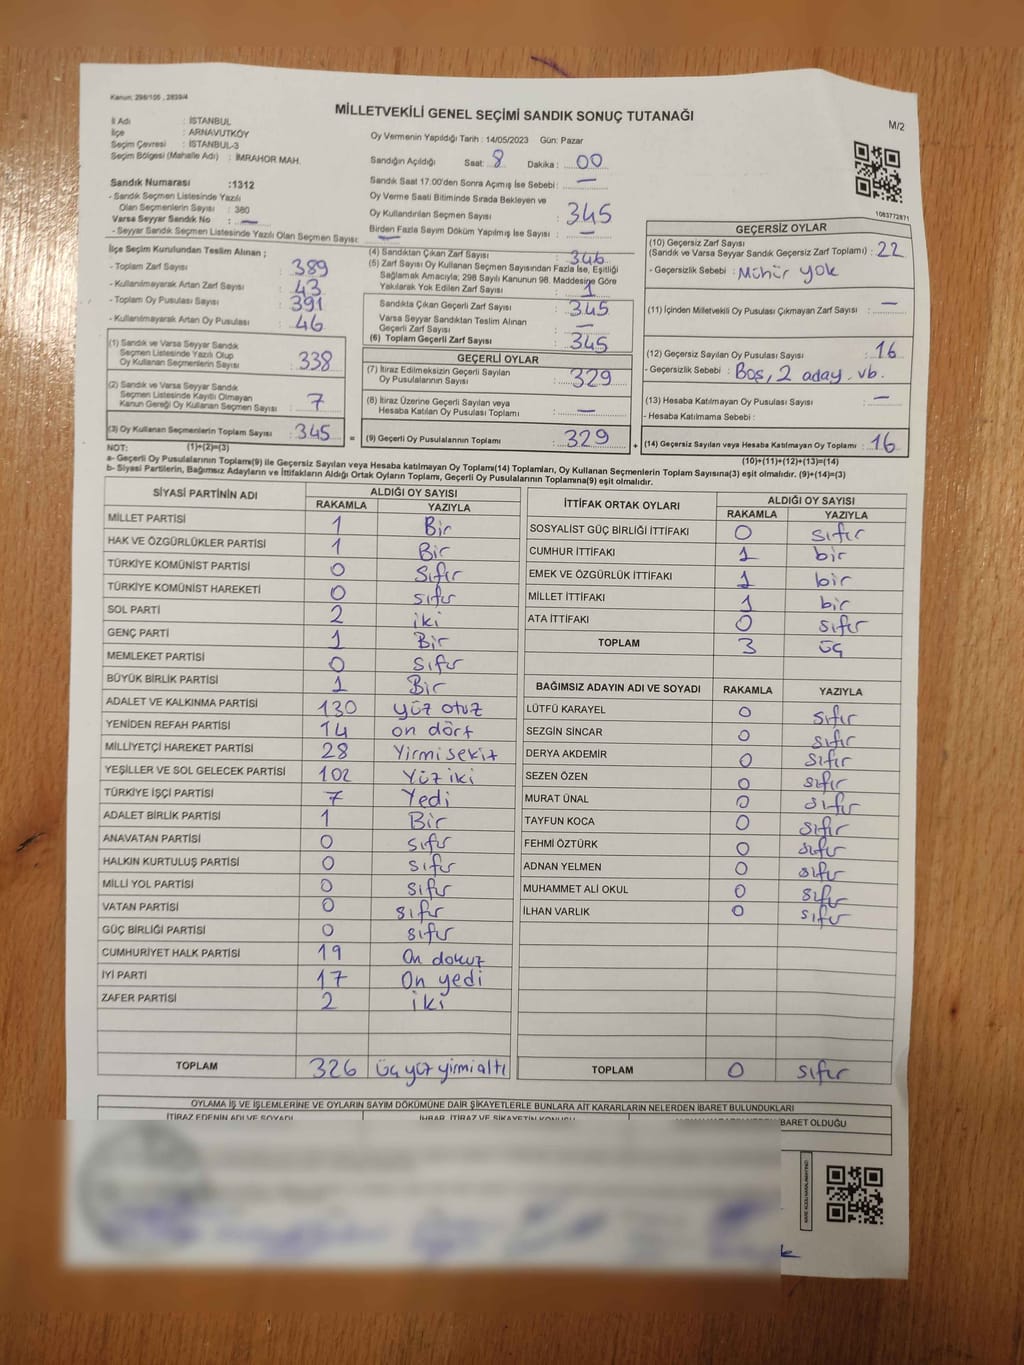 Kanun: 298/105 , 2839/4
MİLLETVEKİLİ GENEL SEÇİMİ SANDIK SONUÇ TUTANAĞI
M/2
İl Adı : İSTANBUL
İlçe : ARNAVUTKÖY
Seçim Çevresi : İSTANBUL-3
Seçim Bölgesi (Mahalle Adı) : İMRAHOR MAH.
Oy Vermenin Yapıldığı Tarih : 14/05/2023 Gün: Pazar
Sandığın Açıldığı Saat: 8 Dakika : 00
Sandık Saat 17:00'den Sonra Açılmış İse Sebebi : —
Sandık Numarası :1312
- Sandık Seçmen Listesinde Yazılı
Olan Seçmenlerin Sayısı : 380
Varsa Seyyar Sandık No : —
- Seyyar Sandık Seçmen Listesinde Yazılı Olan Seçmen Sayısı: —
Oy Verme Saati Bitiminde Sırada Bekleyen ve
Oy Kullandırılan Seçmen Sayısı : 345
Birden Fazla Sayım Döküm Yapılmış İse Sayısı : —
1083772871
İlçe Seçim Kurulundan Teslim Alınan ;
- Toplam Zarf Sayısı : 389
- Kullanılmayarak Artan Zarf Sayısı : 43
- Toplam Oy Pusulası Sayısı : 391
- Kullanılmayarak Artan Oy Pusulası : 46
(1) Sandık ve Varsa Seyyar Sandık
Seçmen Listesinde Yazılı Olup
Oy Kullanan Seçmenlerin Sayısı : 338
(2) Sandık ve Varsa Seyyar Sandık
Seçmen Listesinde Kayıtlı Olmayan
Kanun Gereği Oy Kullanan Seçmen Sayısı : 7
(3) Oy Kullanan Seçmenlerin Toplam Sayısı : 345 =
(4) Sandıktan Çıkan Zarf Sayısı : 346
(5) Zarf Sayısı Oy Kullanan Seçmen Sayısından Fazla İse, Eşitliği
Sağlamak Amacıyla; 298 Sayılı Kanunun 98. Maddesine Göre
Yakılarak Yok Edilen Zarf Sayısı : 1
Sandıkta Çıkan Geçerli Zarf Sayısı : 345
Varsa Seyyar Sandıktan Teslim Alınan
Geçerli Zarf Sayısı : —
(6) Toplam Geçerli Zarf Sayısı : 345
GEÇERLİ OYLAR
(7) İtiraz Edilmeksizin Geçerli Sayılan
Oy Pusulalarının Sayısı : 329
(8) İtiraz Üzerine Geçerli Sayılan veya
Hesaba Katılan Oy Pusulası Toplamı : —
(9) Geçerli Oy Pusulalarının Toplamı : 329 +
GEÇERSİZ OYLAR
(10) Geçersiz Zarf Sayısı
(Sandık ve Varsa Seyyar Sandık Geçersiz Zarf Toplamı) : 22
- Geçersizlik Sebebi : Mühür yok
(11) İçinden Milletvekili Oy Pusulası Çıkmayan Zarf Sayısı : —
(12) Geçersiz Sayılan Oy Pusulası Sayısı : 16
- Geçersizlik Sebebi : Boş, 2 aday. vb.
(13) Hesaba Katılmayan Oy Pusulası Sayısı : —
- Hesaba Katılmama Sebebi :
(14) Geçersiz Sayılan veya Hesaba Katılmayan Oy Toplamı : 16
NOT: (1)+(2)=(3)
(10)+(11)+(12)+(13)=(14)
a- Geçerli Oy Pusulalarının Toplamı(9) ile Geçersiz Sayılan veya Hesaba katılmayan Oy Toplamı(14) Toplamları, Oy Kullanan Seçmenlerin Toplam Sayısına(3) eşit olmalıdır. (9)+(14)=(3)
b- Siyasi Partilerin, Bağımsız Adayların ve İttifakların Aldığı Oy Toplamı, Geçerli Oy Pusulalarının Toplamına(9) eşit olmalıdır.
SİYASİ PARTİNİN ADI ALDIĞI OY SAYISI
RAKAMLA YAZIYLA
MİLLET PARTİSİ 1 Bir
HAK VE ÖZGÜRLÜKLER PARTİSİ 1 Bir
TÜRKİYE KOMÜNİST PARTİSİ 0 Sıfır
TÜRKİYE KOMÜNİST HAREKETİ 0 sıfır
SOL PARTİ 2 iki
GENÇ PARTİ 1 Bir
MEMLEKET PARTİSİ 0 Sıfır
BÜYÜK BİRLİK PARTİSİ 1 Bir
ADALET VE KALKINMA PARTİSİ 130 yüz otuz
YENİDEN REFAH PARTİSİ 14 on dört
MİLLİYETÇİ HAREKET PARTİSİ 28 Yirmi sekiz
YEŞİLLER VE SOL GELECEK PARTİSİ 102 Yüz iki
TÜRKİYE İŞÇİ PARTİSİ 7 Yedi
ADALET BİRLİK PARTİSİ 1 Bir
ANAVATAN PARTİSİ 0 sıfır
HALKIN KURTULUŞ PARTİSİ 0 sıfır
MİLLİ YOL PARTİSİ 0 sıfır
VATAN PARTİSİ 0 sıfır
GÜÇ BİRLİĞİ PARTİSİ 0 sıfır
CUMHURİYET HALK PARTİSİ 19 On dokuz
İYİ PARTİ 17 On yedi
ZAFER PARTİSİ 2 iki
TOPLAM 326 üç yüz yirmi altı
İTTİFAK ORTAK OYLARI ALDIĞI OY SAYISI
RAKAMLA YAZIYLA
SOSYALİST GÜÇ BİRLİĞİ İTTİFAKI 0 sıfır
CUMHUR İTTİFAKI 1 bir
EMEK VE ÖZGÜRLÜK İTTİFAKI 1 bir
MİLLET İTTİFAKI 1 bir
ATA İTTİFAKI 0 sıfır
TOPLAM 3 üç
BAĞIMSIZ ADAYIN ADI VE SOYADI RAKAMLA YAZIYLA
LÜTFÜ KARAYEL 0 sıfır
SEZGİN SİNCAR 0 sıfır
DERYA AKDEMİR 0 sıfır
SEZEN ÖZEN 0 sıfır
MURAT ÜNAL 0 sıfır
TAYFUN KOCA 0 sıfır
FEHMİ ÖZTÜRK 0 sıfır
ADNAN YELMEN 0 sıfır
MUHAMMET ALİ OKUL 0 sıfır
İLHAN VARLIK 0 sıfır
TOPLAM 0 sıfır
OYLAMA İŞ VE İŞLEMLERİNE VE OYLARIN SAYIM DÖKÜMÜNE DAİR ŞİKAYETLERLE BUNLARA AİT KARARLARIN NELERDEN İBARET BULUNDUKLARI
İTİRAZ EDENİN ADI VE SOYADI İHBAR, İTİRAZ VE ŞİKAYETİN KONUSU
İBARET OLDUĞU